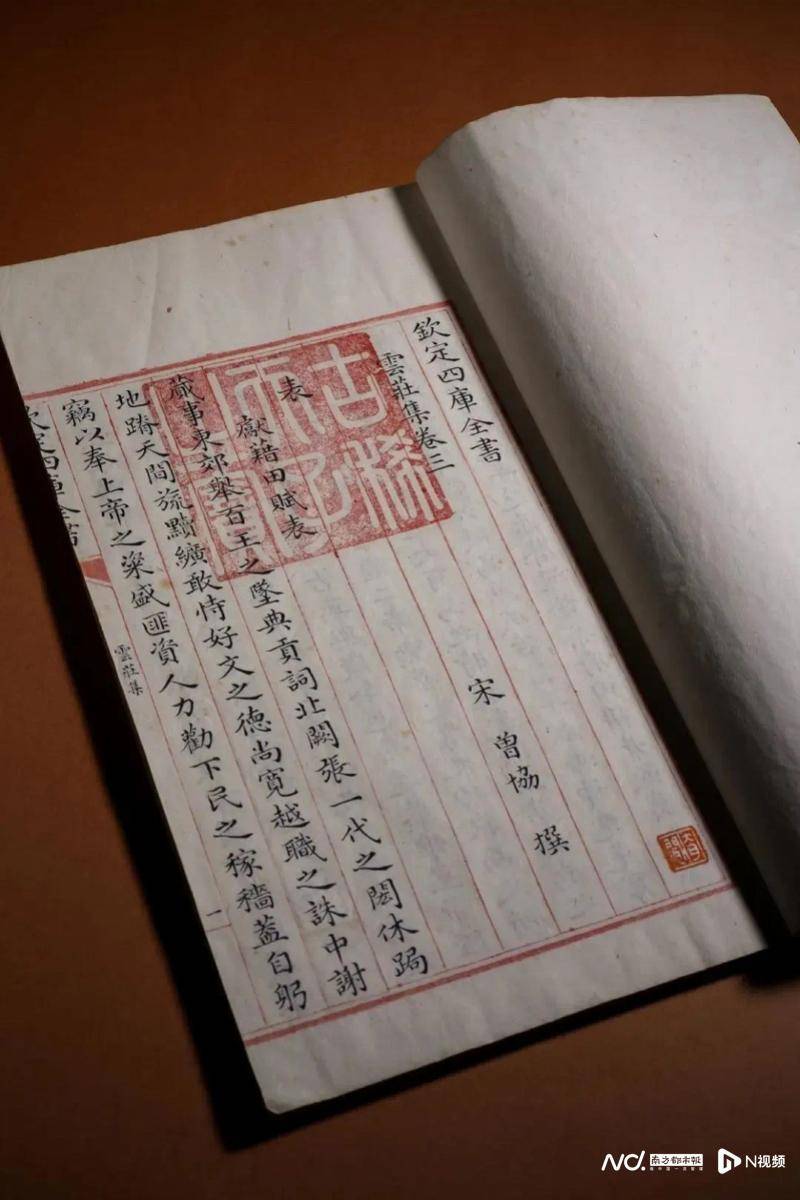 欽定四庫全書
雲莊集卷三
宋 曽協 撰
表
獻藉田賦表
蕆事東郊舉百王之墜典貢詞北闕張一代之閎休跼
地蹐天間旒黈纊敢恃好文之德尚寛越職之誅中謝
竊以奉上帝之粢盛匪資人力勸下民之稼穡蓋自躬
欽定四庫全書
雲莊集
一
古稀天子之寶
南方都市報
N视频